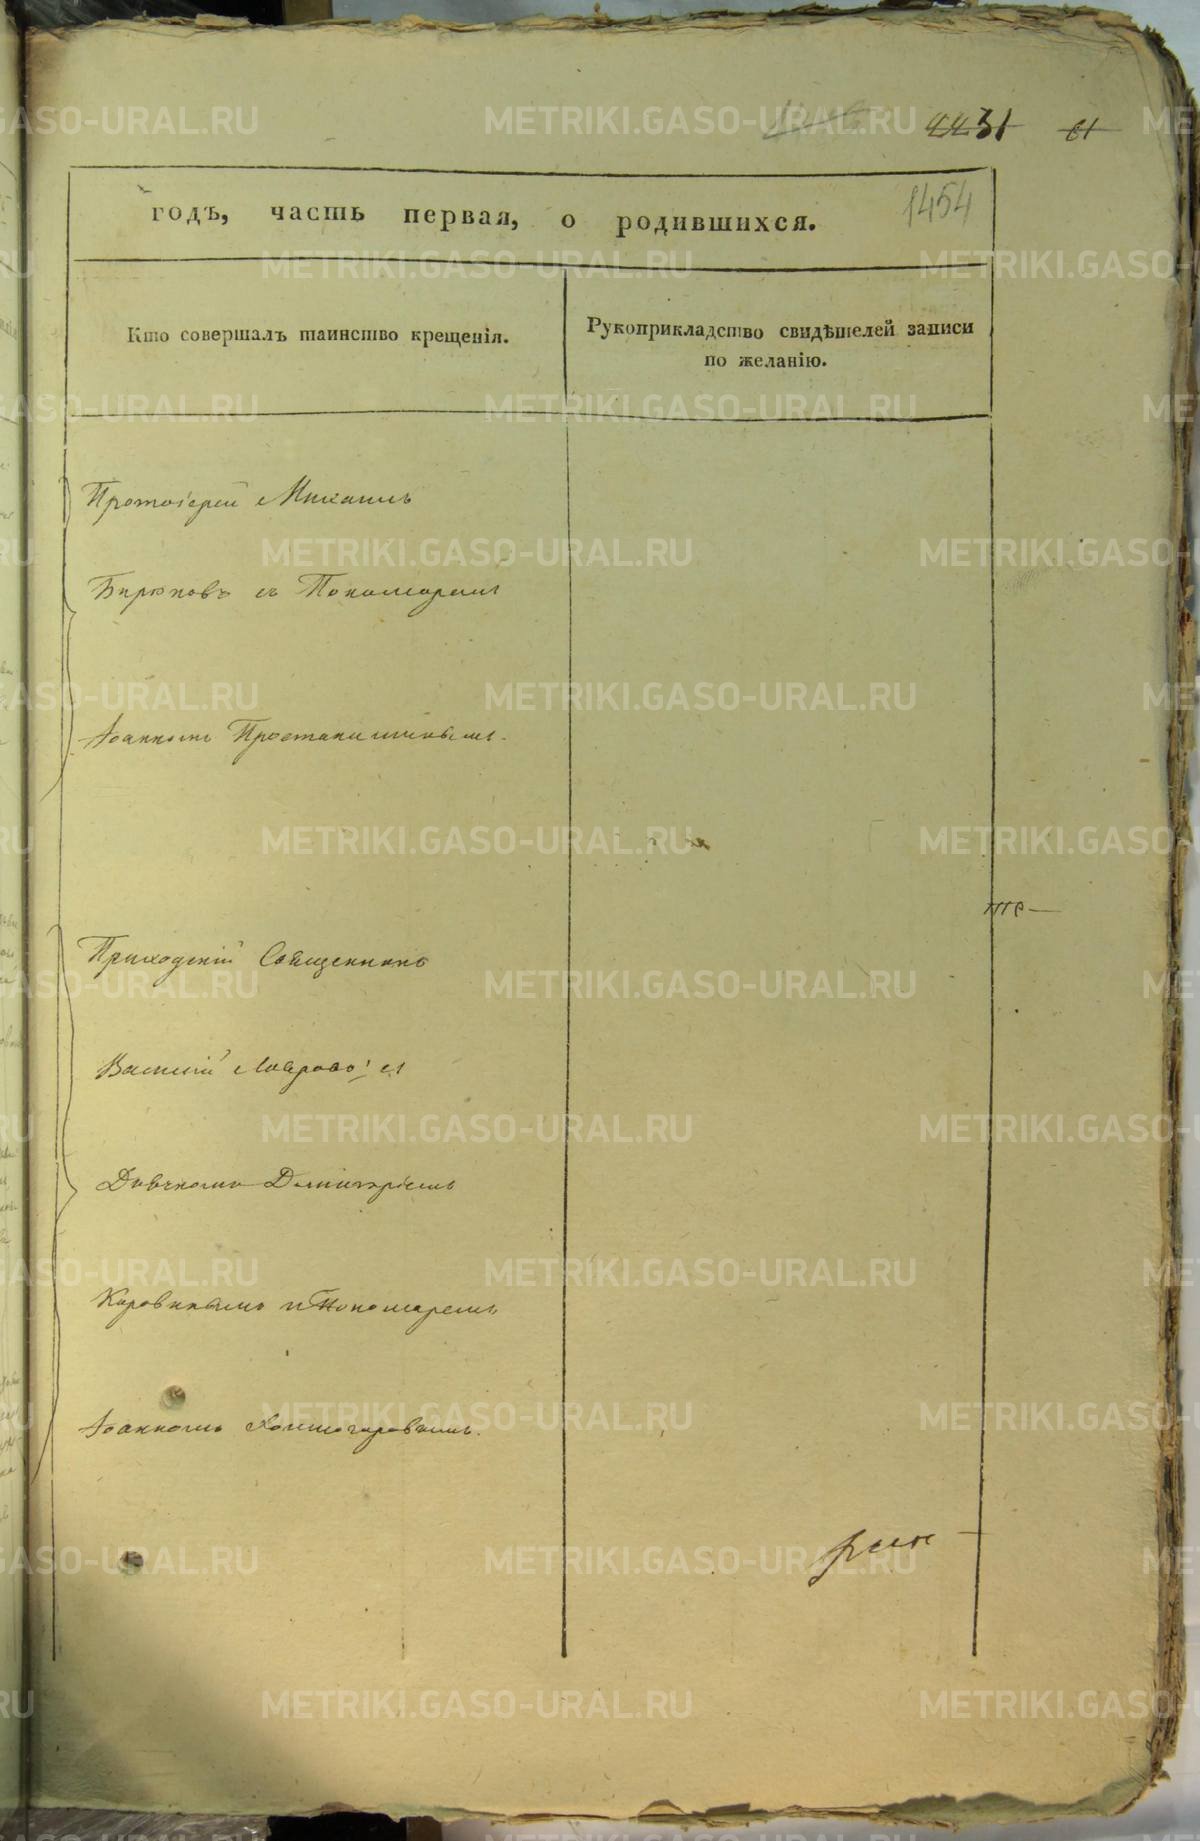 31
1454
годъ, часть первая, о родившихся.
Кто совершалъ таинство крещенія.
Рукоприкладство свидѣтелей записи
по желанію.
Протоіерей Михаилъ
Бирюковъ съ Пономаремъ
Іоанномъ Простанишнымъ.
Приходскій Священникъ
Василій Лавровъ съ
Дьячкомъ Димитріемъ
Коровинымъ и Пономаремъ
Іоанномъ Холмогоровымъ.
METRIKI.GASO-URAL.RU